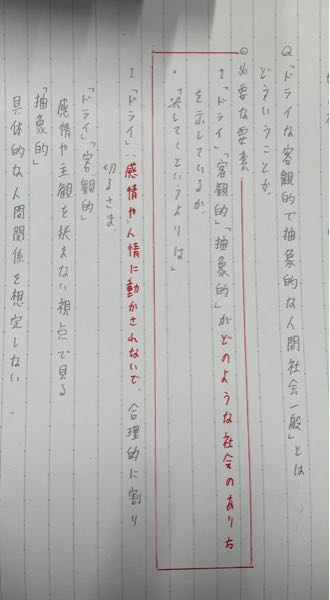 Q「ドライな客観的で抽象的な人間社会一般」とは
どういうことか。
◎必要な要素
1「ドライ」「客観的」「抽象的」がどのような社会のあり方
を示しているか。
・「決して〜というよりは」
1「ドライ」:感情や人情に動かされないで、合理的に割り
切るさま。
「ドライ」「客観的」
感情や主観を挟まない視点で見る
「抽象的」
具体的な人間関係を想定しない